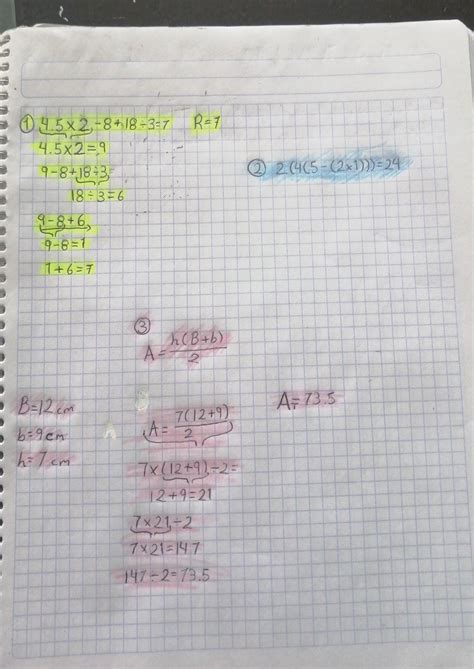 ① 4.5×2-8+18÷3=7 R=7
4.5×2=9
9-8+18÷3
18÷3=6
9-8+6
9-8=1
1+6=7
② 2(4(5-(2×1)))=24
③
A=h(B+b)/2
B=12 cm
b=9 cm
h=7 cm
A=7(12+9)/2
7×(12+9)÷2=
12+9=21
7×21÷2
7×21=147
147÷2=73.5
A=73.5